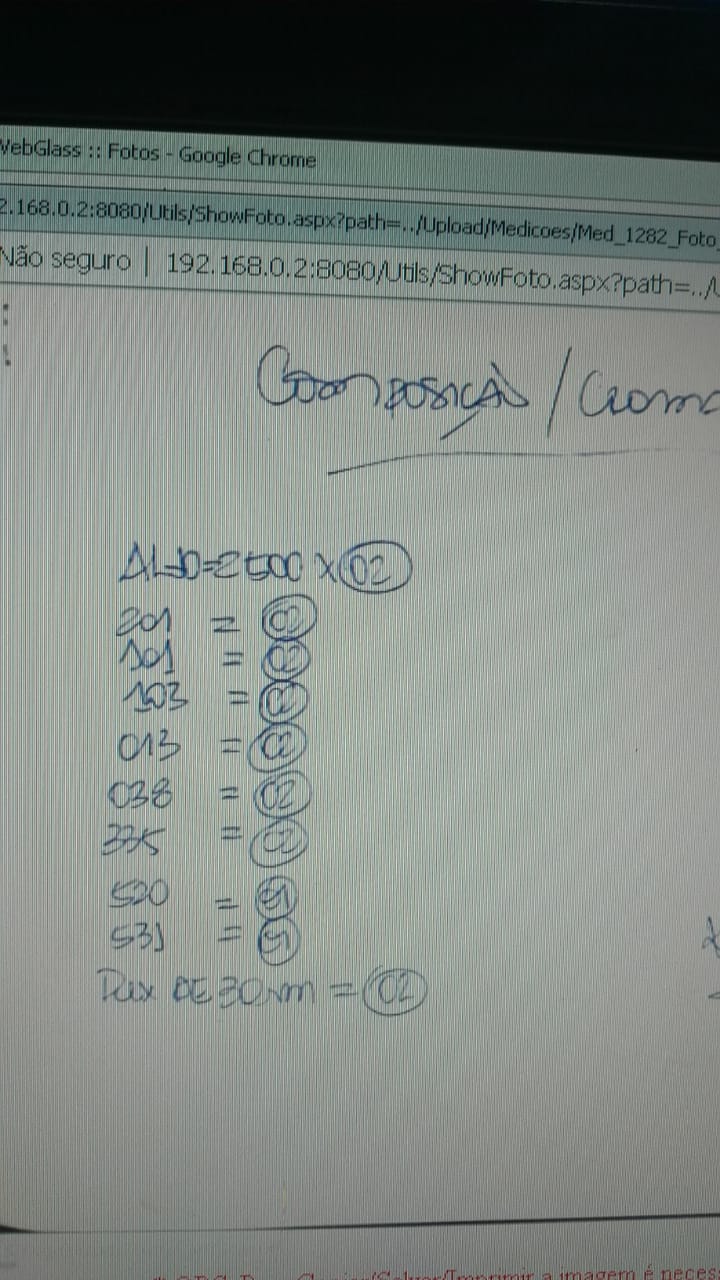 WebGlass :: Fotos - Google Chrome
2.168.0.2:8080/Utils/ShowFoto.aspx?path=../Upload/Medicoes/Med_1282_Foto_
Não seguro | 192.168.0.2:8080/Utils/ShowFoto.aspx?path=../U
Composição / Croma
=2500 x 02
201 = 02
101 = 02
103 = 02
013 = 02
038 = 02
335 = 02
520 =
531 =
DE 30 = 02
a imagem é neces